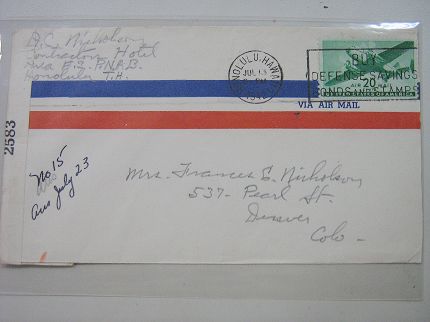 A.C. Nicholson
Contractors Hotel
Area E-2. P.N.A.B.
Honolulu T.H.
HONOLULU, HAWAII
JUL 13
BUY
DEFENSE SAVINGS
BONDS AND STAMPS
AIR 20¢ MAIL
UNITED STATES OF AMERICA
VIA AIR MAIL
2583
No 15
Ans July 23
Mrs. Frances E. Nicholson
537- Pearl St.
Denver
Colo -